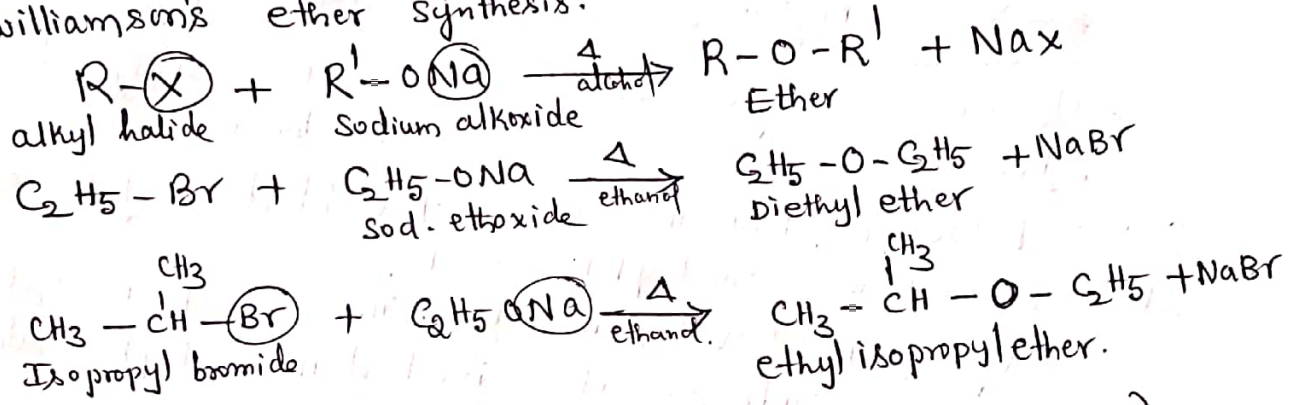 williamson's ether synthesis.
R-X + R'-ONa —Δ/alcohol→ R-O-R' + Nax
alkyl halide Sodium alkoxide Ether
C2H5-Br + C2H5-ONa —Δ/ethanol→ C2H5-O-C2H5 + NaBr
Sod. ethoxide Diethyl ether
CH3 CH3
CH3-CH-Br + C2H5ONa —Δ/ethanol.→ CH3-CH-O-C2H5 + NaBr
Isopropyl bromide ethyl isopropyl ether.